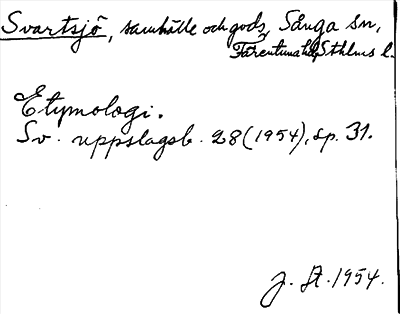 Svartsjö, samhälle och gods, Sånga sn,
Färentuna hd, Sthlms l.
Etymologi.
Sv. uppslagsb. 28 (1954), sp. 31.
J. St. 1954.